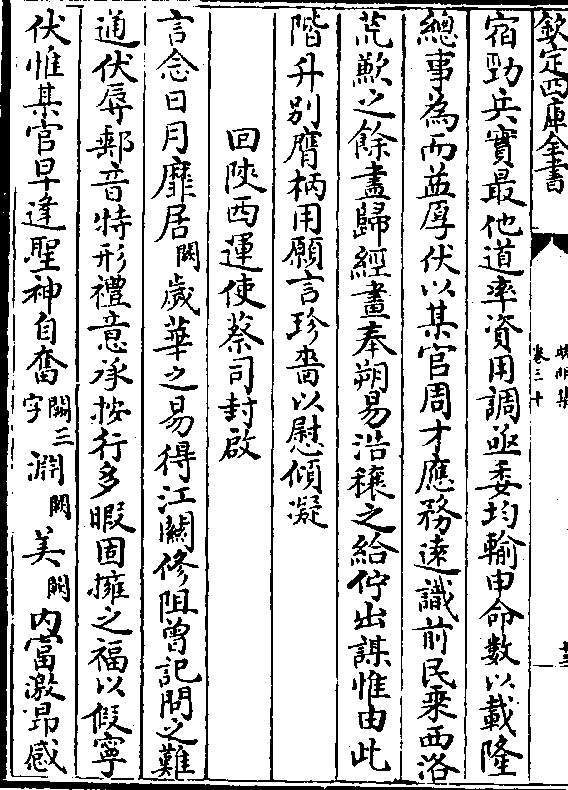 欽定四庫全書
卷三十
宿勁兵實最他道率資用調亟委均輸申命數以載隆
總事為而益厚伏以某官周才應務遠識前民乘西洛
荒歉之餘盡歸經畫奉朔易浩穰之給佇出謀惟由此
階升别膺柄用願言珍嗇以慰傾凝
回陜西運使蔡司封啟
言念日月靡居闕歲華之易得江關修阻曾記問之難
通伏辱郵音特形禮意承按行多暇固擁之福以假寧
伏惟某官早逢聖神自奮闕三字淵闕美闕内富激昂感